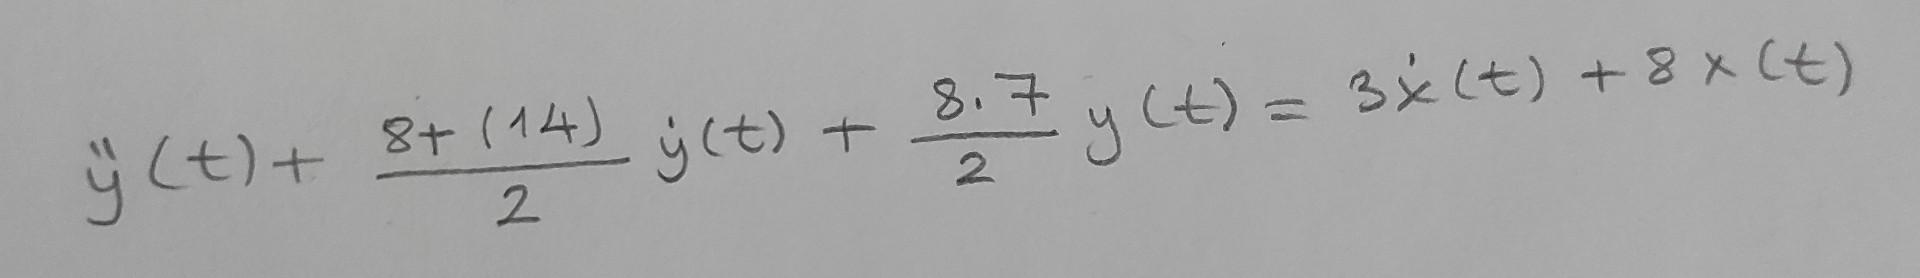 ÿ(t) + \frac{8+(14)}{2} ẏ(t) + \frac{8.7}{2} y(t) = 3ẋ(t) + 8x(t)